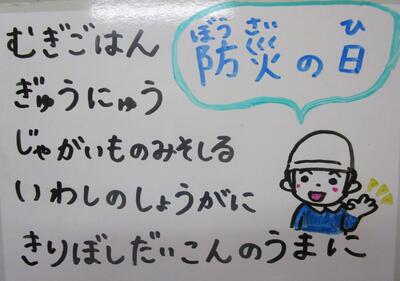 むぎごはん
ぎゅうにゅう
じゃがいものみそしる
いわしのしょうがに
きりぼしだいこんのうまに
ぼうさい ひ
防災の日